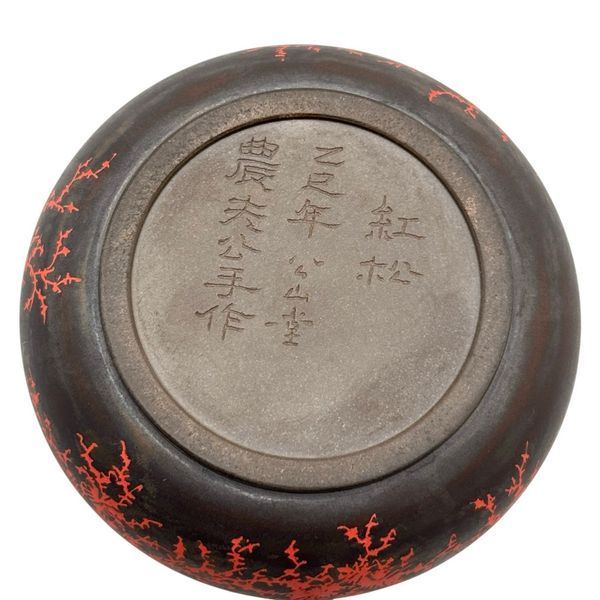 紅松
乙巳年 公山堂
農夫公手作